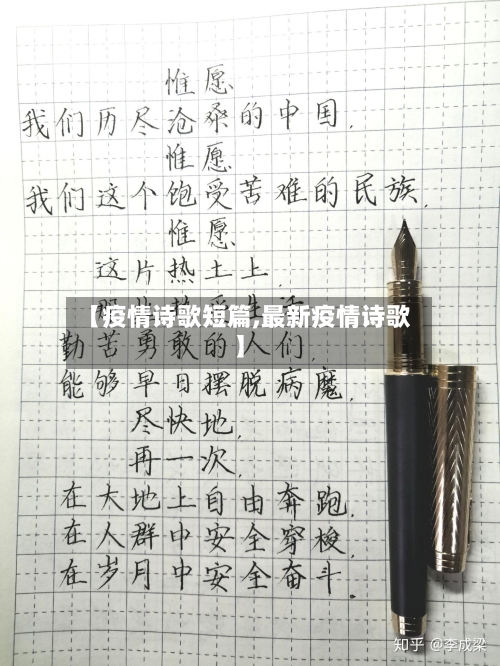 惟愿
我们历尽沧桑的中国.
惟愿
我们这个饱受苦难的民族.
惟愿
这片热土上.
【疫情诗歌短篇,最新疫情诗歌
】
勤苦勇敢的人们,
能够早日摆脱病魔.
尽快地,
再一次,
在大地上自由奔跑.
在人群中安全穿梭,
在岁月中安全奋斗.
知乎 @李成梁